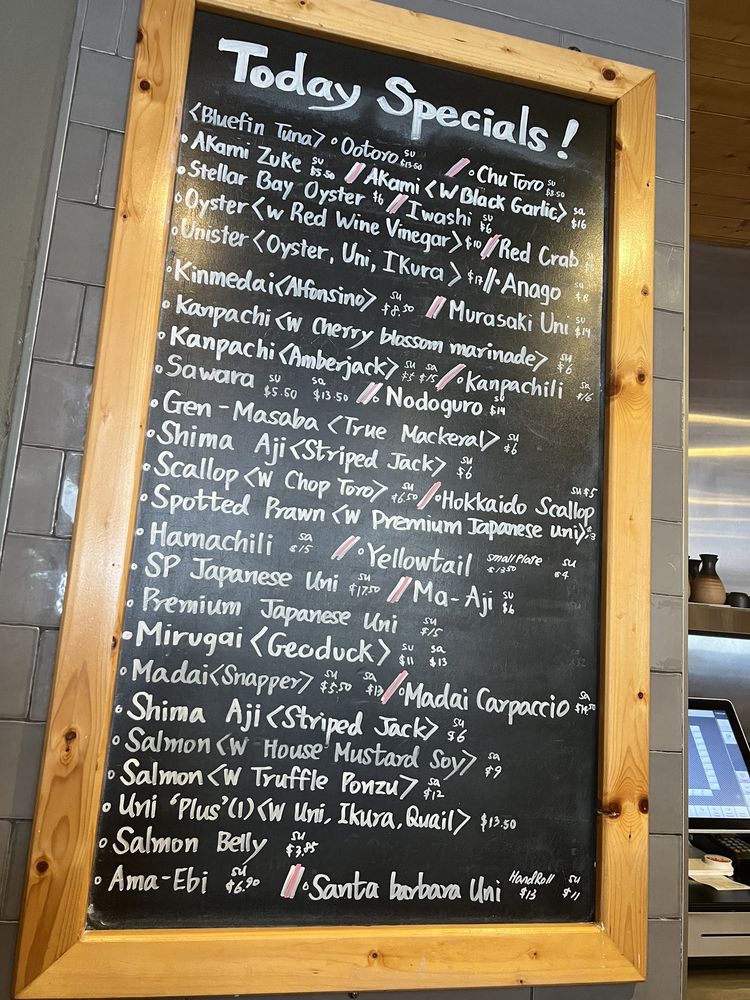 Today Specials!
<Bluefin Tuna> • Ootoro su $13.50 // • Chu Toro su $8.50
• Akami Zuke su $5.50 // Akami <W Black Garlic> sa $16
• Stellar Bay Oyster $6 // Iwashi su $6
• Oyster <w Red Wine Vinegar> $10 // Red Crab su
• Unister <Oyster, Uni, Ikura> $17 // • Anago su $8
• Kinmedai <Alfonsino> su $8.50 // Murasaki Uni su $14
• Kanpachi <w Cherry blossom marinade> su $6
• Kanpachi <Amberjack> su $5 sa $15 // • Kanpachili sa $16
• Sawara su $5.50 sa $13.50 // • Nodoguro su $14
• Gen-Masaba <True Mackeral> su $6
• Shima Aji <Striped Jack> su $6
• Scallop <w Chop Toro> su $6.50 // • Hokkaido Scallop su $5
• Spotted Prawn <w Premium Japanese uni>
• Hamachili sa $15 // • Yellowtail Small Plate $13.50 su $4
• SP Japanese Uni su $17.50 // Ma-Aji su $6
• Premium Japanese Uni su $15
• Mirugai <Geoduck> su $11 sa $13
• Madai <Snapper> su $5.50 sa // • Madai Carpaccio sa $14.50
• Shima Aji <Striped Jack> su $6
• Salmon <W House Mustard Soy> sa $9
• Salmon <W Truffle Ponzu> sa $12
• Uni 'Plus'(1) <W Uni, Ikura, Quail> $13.50
• Salmon Belly su $3.95
• Ama-Ebi su $6.90 // • Santa barbara Uni HandRoll $13 su $11